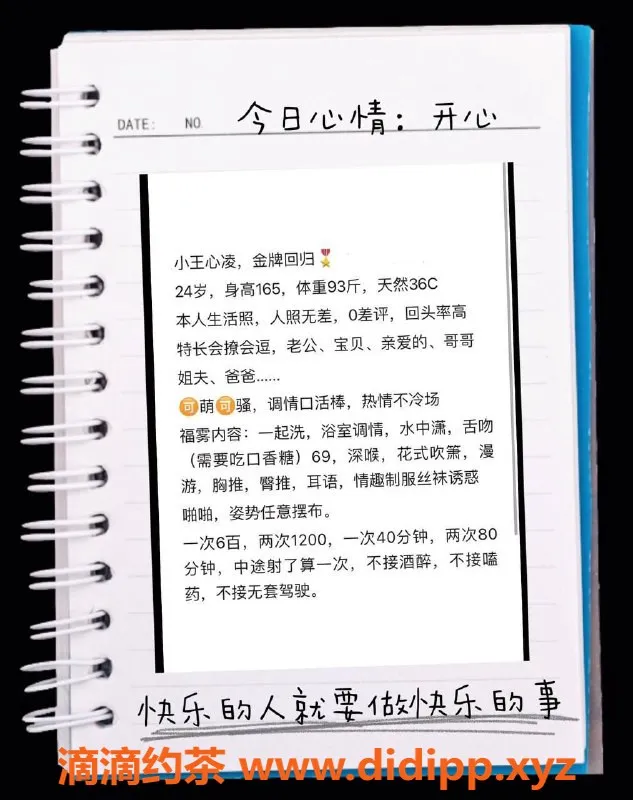 DATE: NO
今日心情：开心
小王心凌，金牌回归🎖
24岁，身高165，体重93斤，天然36C
本人生活照，人照无差，0差评，回头率高
特长会撩会逗，老公、宝贝、亲爱的、哥哥
姐夫、爸爸......
🉑萌🉑骚，调情口活棒，热情不冷场
福雾内容：一起洗，浴室调情，水中潇，舌吻
（需要吃口香糖）69，深喉，花式吹箫，漫
游，胸推，臀推，耳语，情趣制服丝袜诱惑
啪啪，姿势任意摆布。
一次6百，两次1200，一次40分钟，两次80
分钟，中途射了算一次，不接酒醉，不接嗑
药，不接无套驾驶。
快乐的人就要做快乐的事
滴滴约茶 www.didipp.xyz